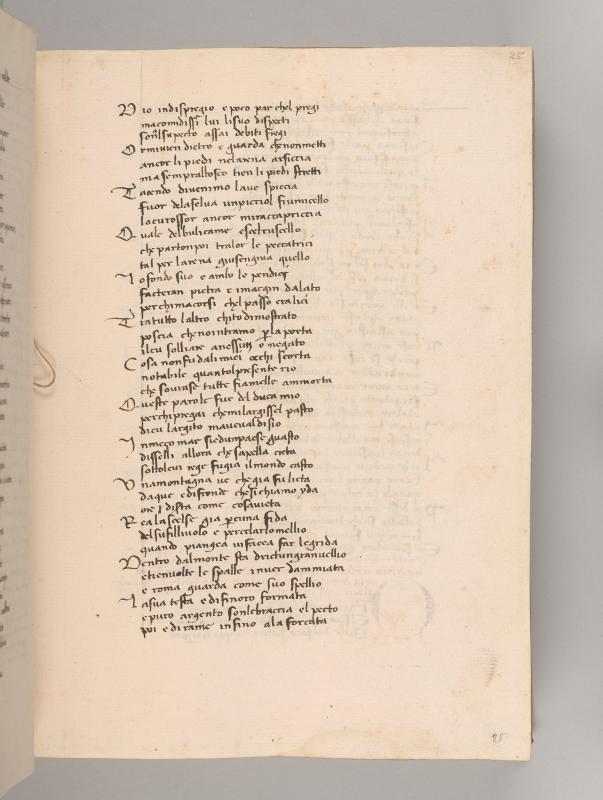 25
D io indispregio e poco par chel pregi
macomidissi lui lisuo dispecti
sonlsupecto assai debiti fregi
O rmivien dietro e guarda chenonmetti
ancor li piedi nelarena arsiccia
masempralbosco tien li piedi stretti
T acendo divenimo lave spiccia
fuor delaselva unpicciol fiumicello
locurossor ancor miraccapriccia
Q uale delbulicame escelruscello
che partonpoi tralor le peccatrici
tal per larena giusengiva quello
I ofondo suo e ambo le pendici
facteran pietra e imargin dalato
perchimacorsi chel passo eralici
T ratutto laltro chitodimostrato
poscia chenointramo perlaporta
ilcu solliare anessun e negato
C osa nonfu dalituoi occhi scorta
notabile quantolpresente rio
che sovrase tutte fiamelle ammorta
Q ueste parole fur del duca mio
perchipregai chemilargissel pasto
dicu largito mavevaldisio
I nmeço mar siedunpaese guasto
disselli allora che sapella creta
sottolcui rege fugia ilmondo casto
U namontagna ve che gia fu lieta
daque e difronde chesichiamo yda
ore dista come cosavieta
R ea lascelse gia percuna fida
delsufilliuolo e percelarlomellio
quando piangea vifacea far legrida
D entro dalmonte sta drictungranvellio
chetienvolte le spalle inver dammiata
e roma guarda come suo spellio
I asua testa e difinoro formata
e puro argento sonlebraccia el pecto
poi e dirame infino ala forcata
25